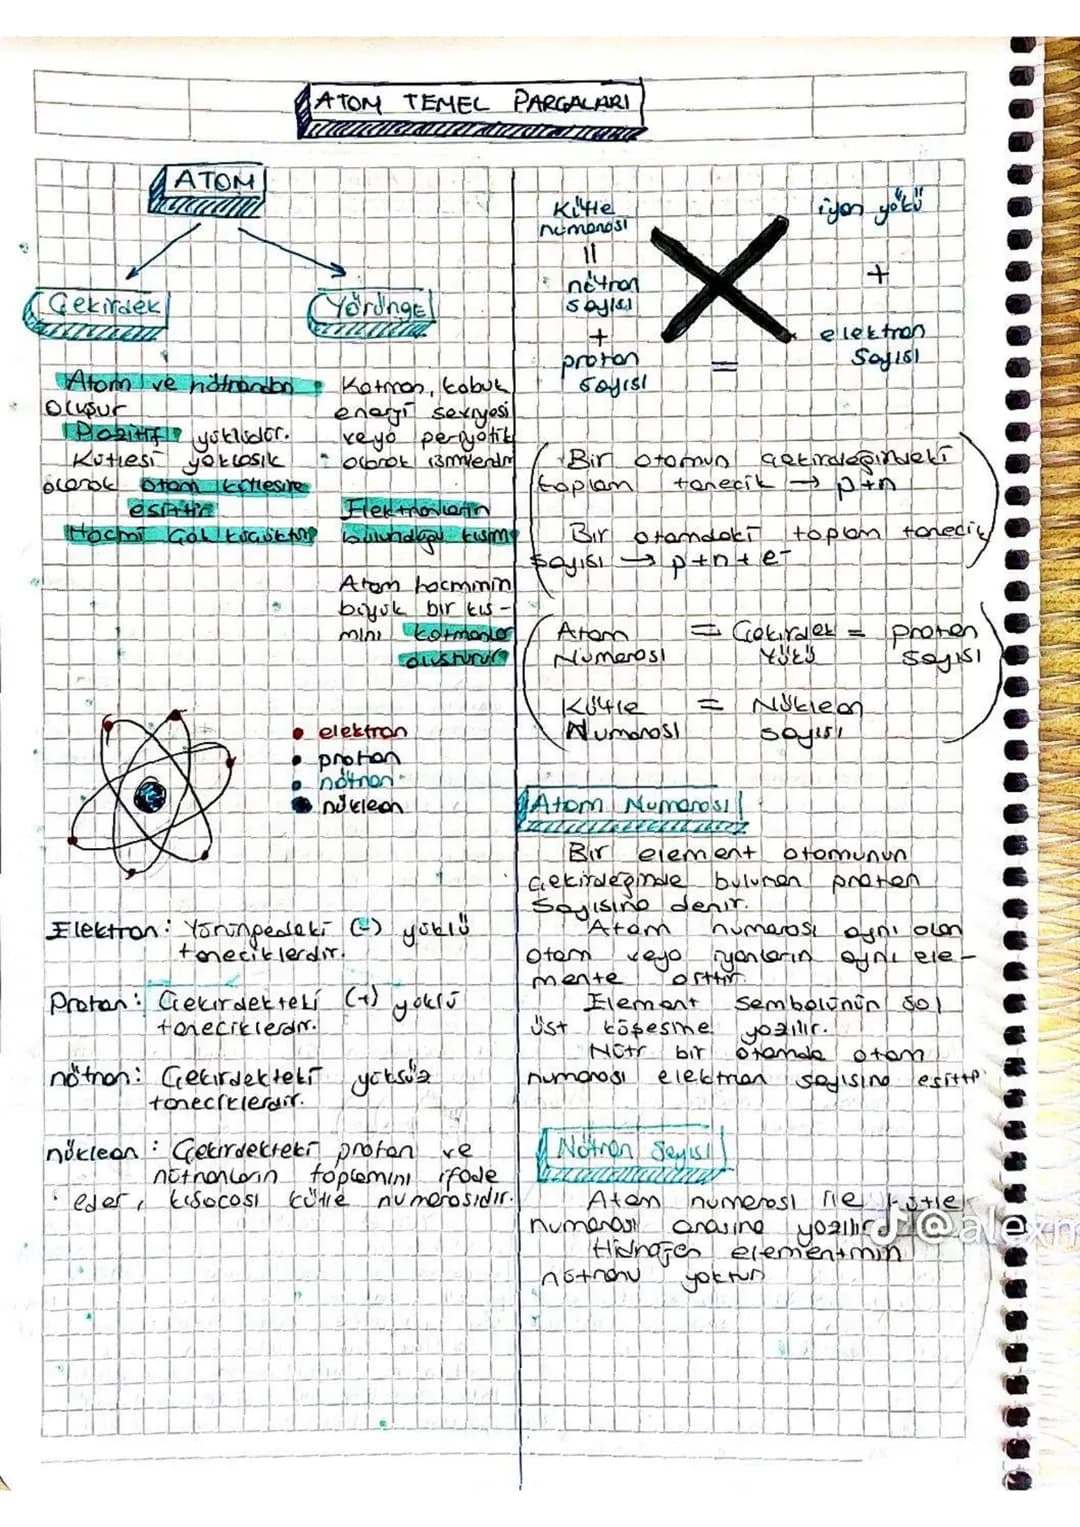 ATOM TEMEL PARÇALARI
ATOM
Çekirdek
Yörünge
Atom ve nötrondan
oluşur
Pozitif yüklüdür.
Kütlesi yaklaşık
olarak atom kütlesine
eşittir
Hacmi çok küçüktür
Katman, kabuk
enerji seviyesi
veya periyotik
olarak isimlendir
Elektronların
bulunduğu kısım
Atom hacminin
büyük bir kıs-
mını katmanlar
oluşturur
elektron
proton
nötron
nükleon
Elektron: Yörüngedeki (-) yüklü
taneciklerdir.
Proton: Çekirdekteki (+) yüklü
taneciklerdir.
nötron: Çekirdekteki yüksüz
taneciklerdir.
nükleon: Çekirdekteki proton ve
nötronların toplamını ifade
eder, kısacası kütle numarasıdır.
Kütle
numarası
=
nötron
sayısı
+
proton
sayısı
X
=
iyon yükü
+
elektron
sayısı
Bir atomun çekirdeğindeki
toplam tanecik → p+n
Bir atomdaki toplam tanecik
sayısı → p+n+e-
Atom = Çekirdek = proton
Numarası Yükü sayısı
Kütle = Nükleon
Numarası sayısı
Atom Numarası
Bir element atomunun
çekirdeğinde bulunan proton
sayısına denir.
Atom numarası aynı olan
atom veya iyonların aynı ele-
mente aittir.
Element sembolünün sol
üst köşesine yazılır.
Nötr bir atomda atom
numarası elektron sayısına eşittir.
Nötron Sayısı
Atom numarası ile kütle
numarası arasına yazılır
Hidrojen elementinin
nötronu yoktur
@alexm